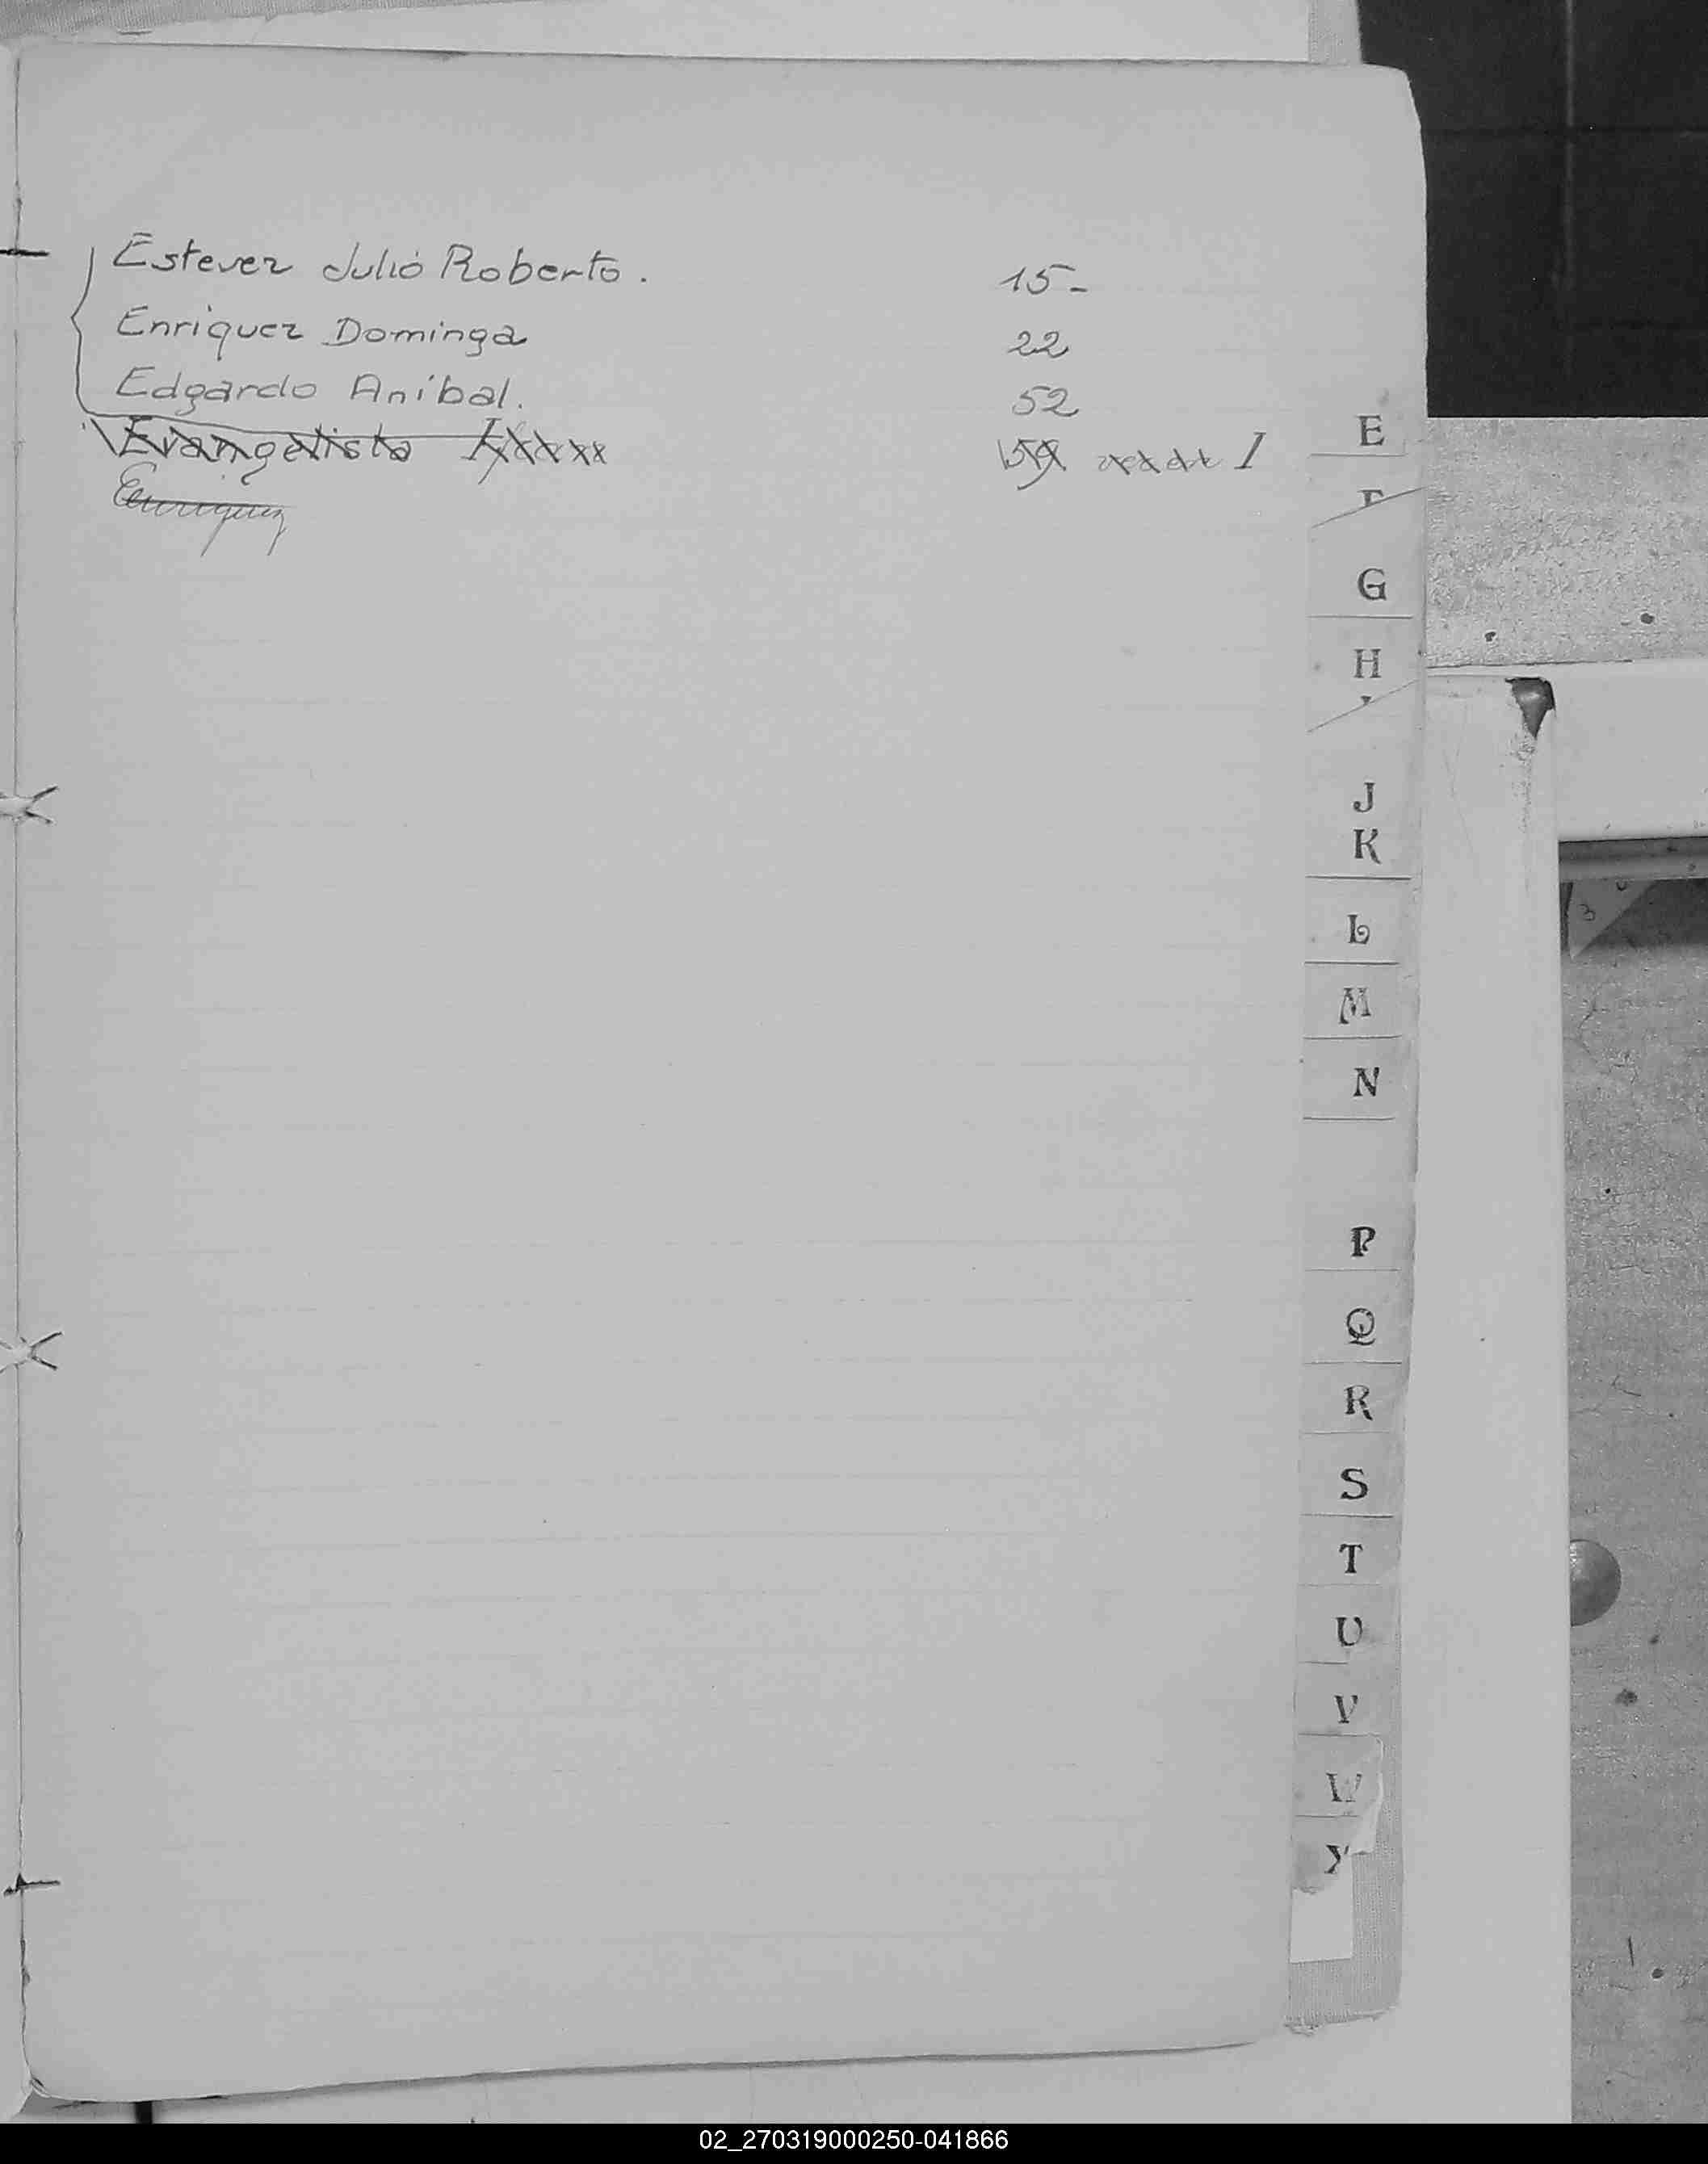 Estevez Julio Roberto. 15-
Enriquez Dominga 22
Edgardo Anibal. 52
Evangelista 59 1
Enriquez
E
F
G
H
J
K
L
M
N
P
Q
R
S
T
U
V
W
Y
3
02_270319000250-041866